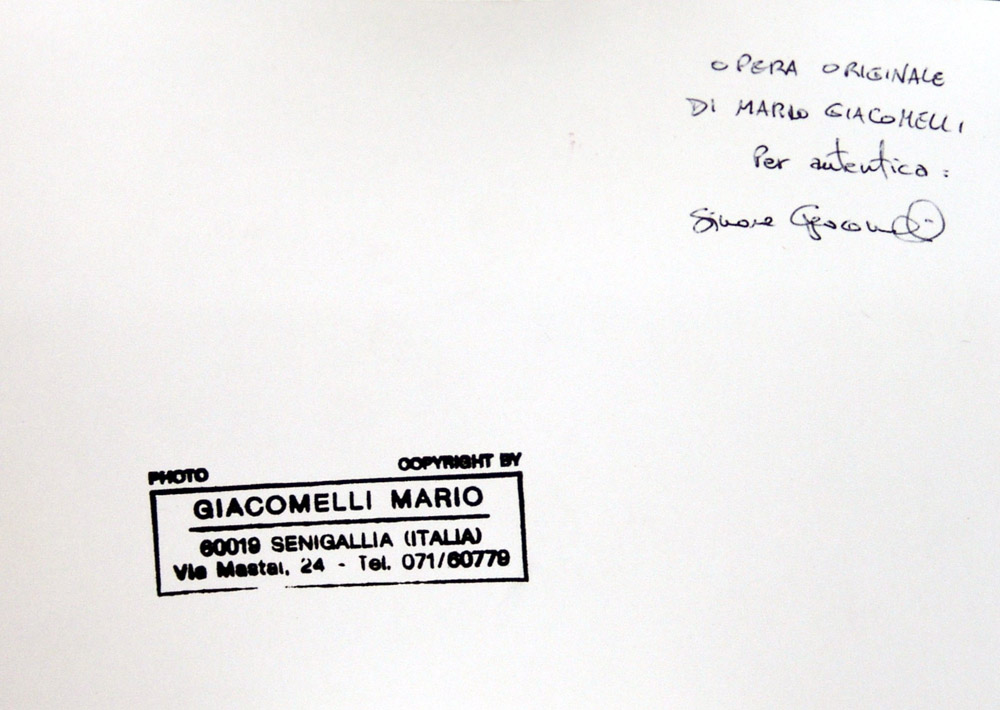 OPERA ORIGINALE
DI MARIO GIACOMELLI
Per autentica :
Simone Giacomelli
PHOTO COPYRIGHT BY
GIACOMELLI MARIO
60019 SENIGALLIA (ITALIA)
Via Mastai, 24 - Tel. 071/60779